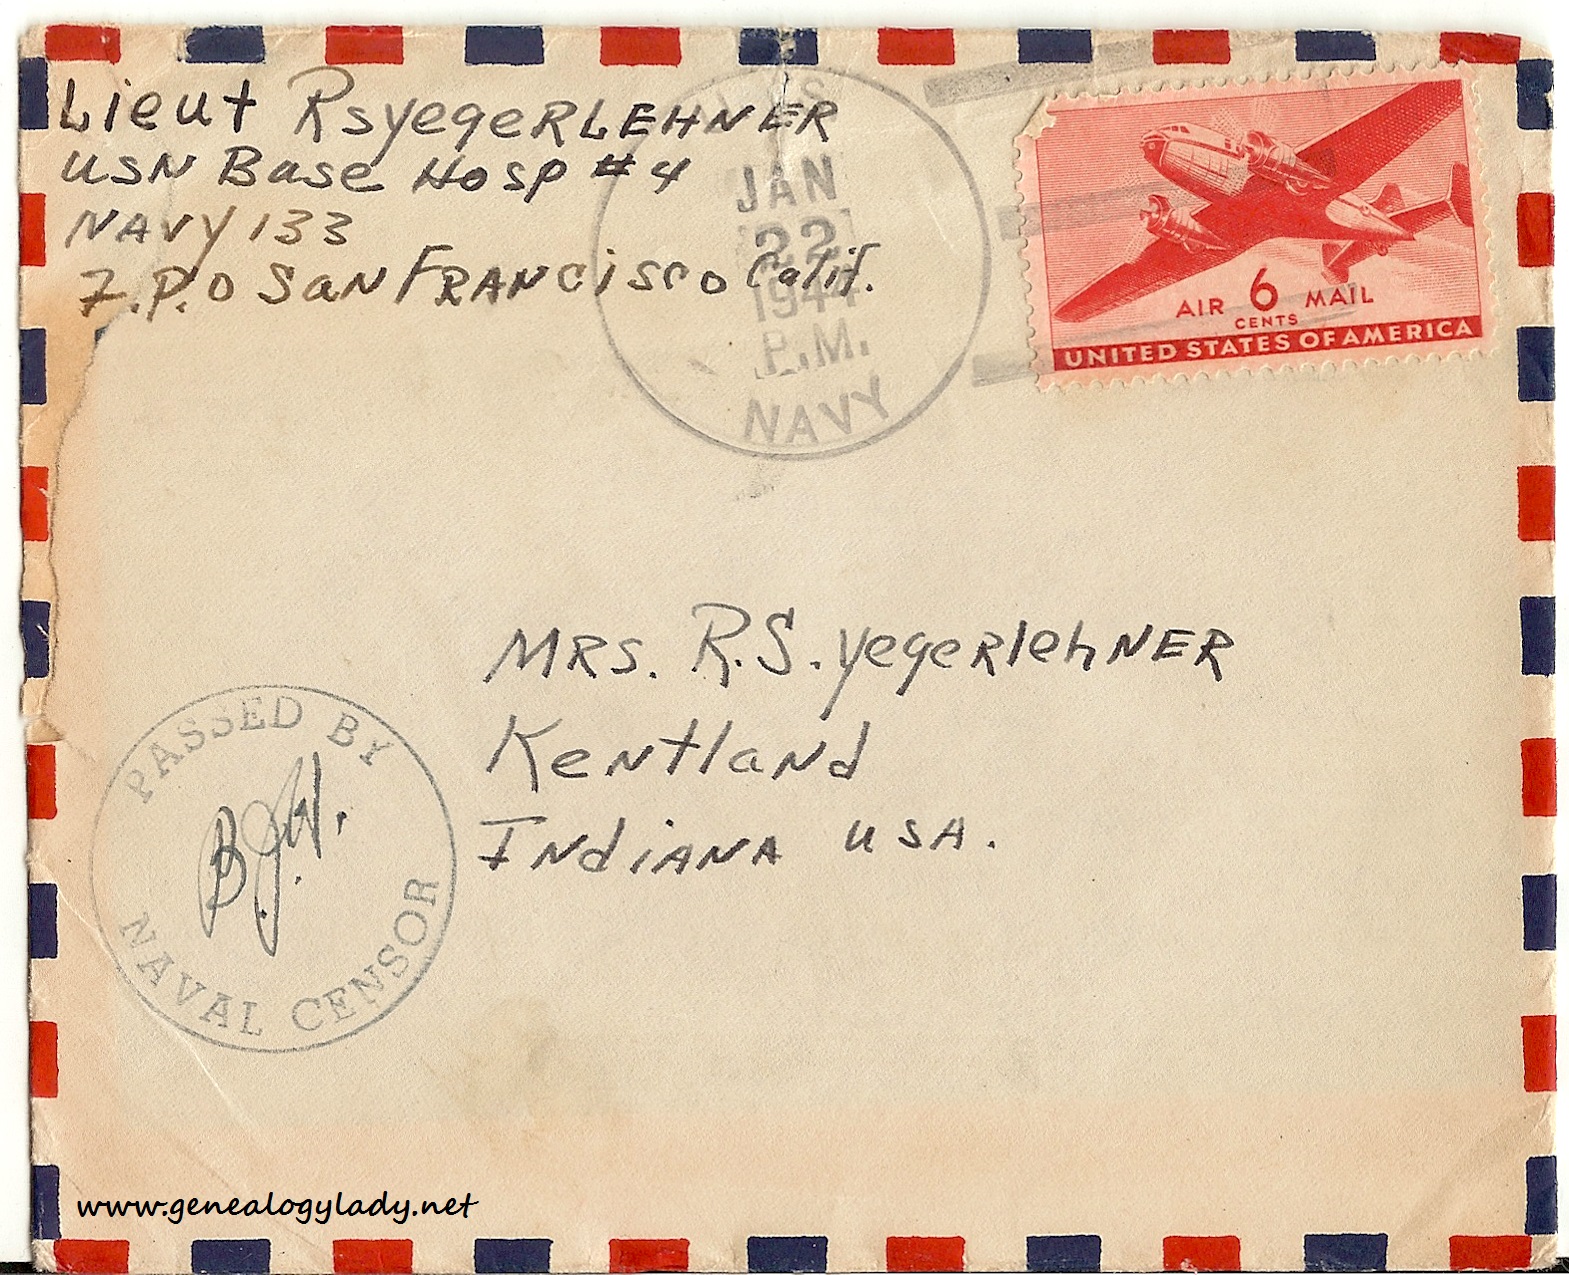 Lieut RSYegerLEHNER
USN Base Hosp #4
NAVY 133
F.P.O San FRANcisco Calif.
U.S.
JAN
22
1944
P.M.
NAVY
AIR 6 MAIL
CENTS
UNITED STATES OF AMERICA
MRS. R.S. YegeRlehNER
Kentland
INdiANA USA.
PASSED BY
B.J.W.
NAVAL CENSOR
www.genealogylady.net